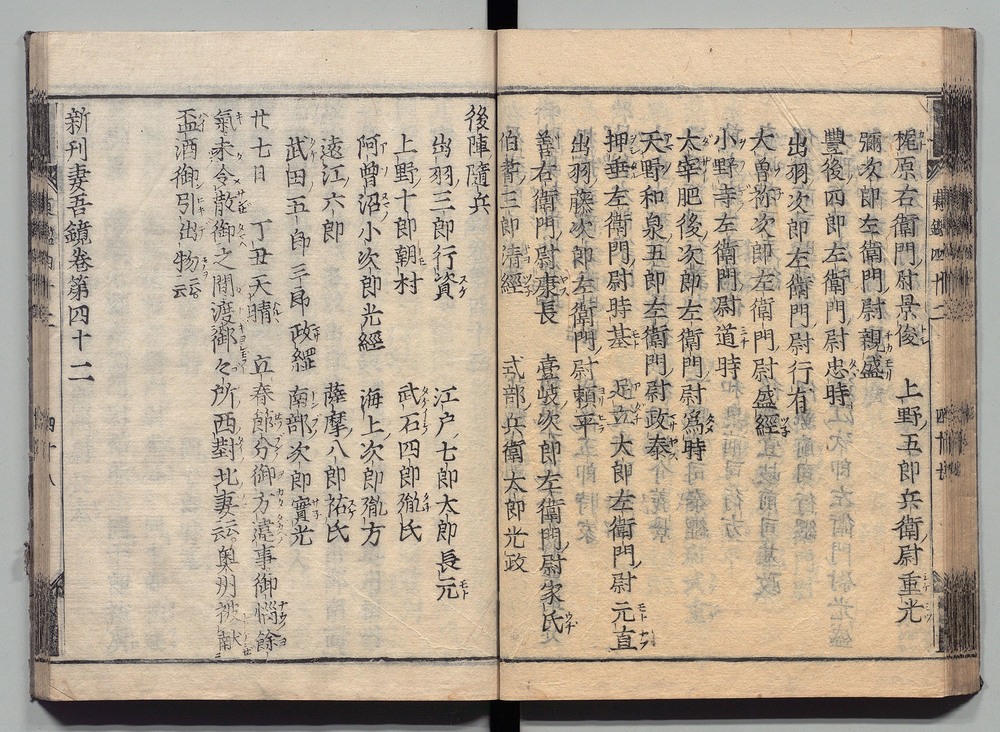 梶原右衛門尉景俊　上野五郎兵衛尉重光
彌次郎左衛門尉親盛
豊後四郎左衛門尉忠時
出羽次郎左衛門尉行有
大曽祢次郎左衛門尉盛經
小野寺左衛門尉道時
太宰肥後次郎左衛門尉為時
天野和泉五郎左衛門尉政泰
押垂左衛門尉時基　足立大郎左衛門尉元直
出羽藤次郎左衛門尉頼平
善右衛門尉康長　壹岐次郎左衛門尉家氏
伯耆三郎清經　式部兵衛太郎光政
後陣隨兵
出羽三郎行資　江戸七郎太郎長元
上野十郎朝村　武石四郎胤氏
阿曽沼小次郎光經　海上次郎胤方
遠江六郎　薩摩八郎祐氏
武田五郎三郎政經　南部次郎實光
廿七日　丁丑天晴　立春節分御方違事御惱餘
氣未令散御之間渡御々所西對北妻云奥州被献
盃酒御引出物云
新刊吾妻鏡巻第四十二